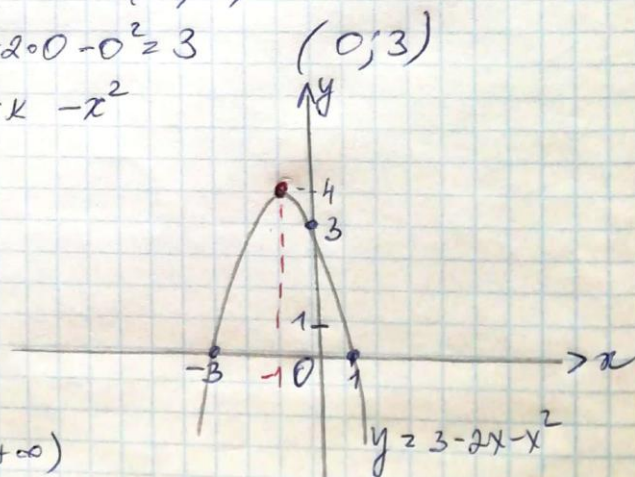 2·0-0²=3 (0;3)
x -x²
y
4
3
1
-3 -1 0 1 x
y=3-2x-x²
+∞)